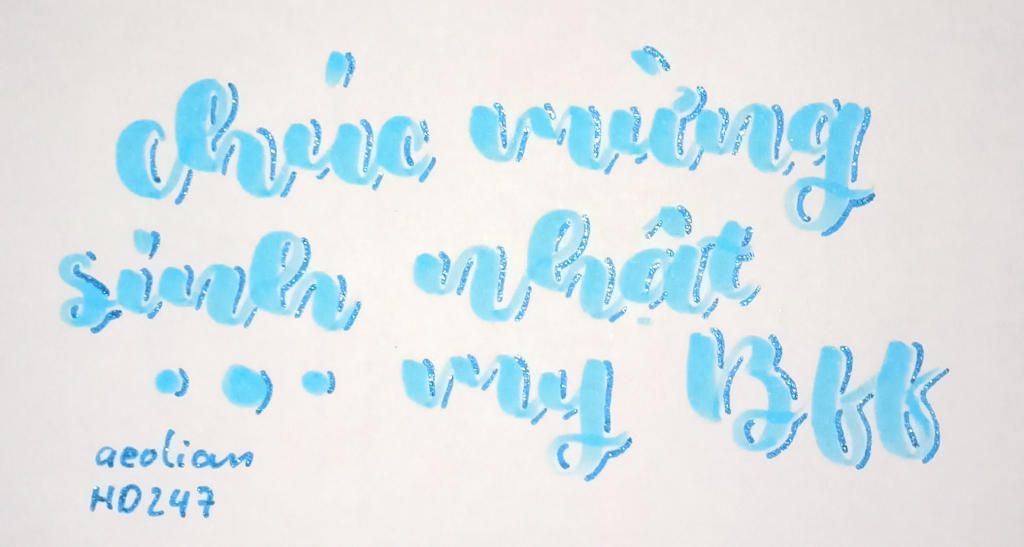 chúc mừng
sinh nhật
... my Bff
aeolian
HD247